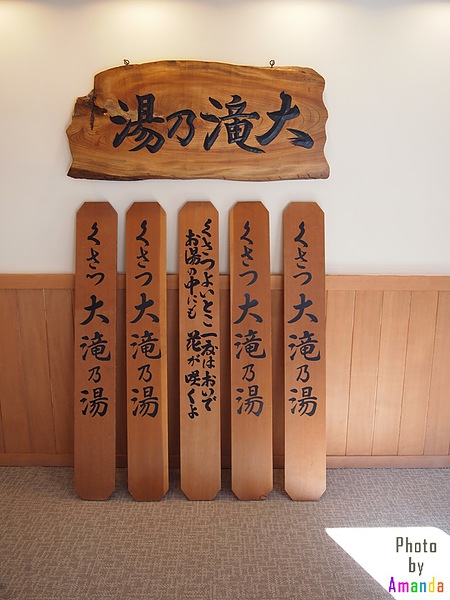 大滝乃湯
くさつ 大滝乃湯
くさつ 大滝乃湯
くさつよいとこ 一度はおいで
お湯の中にも 花が咲くよ
くさつ 大滝乃湯
くさつ 大滝乃湯
Photo
by
Amanda